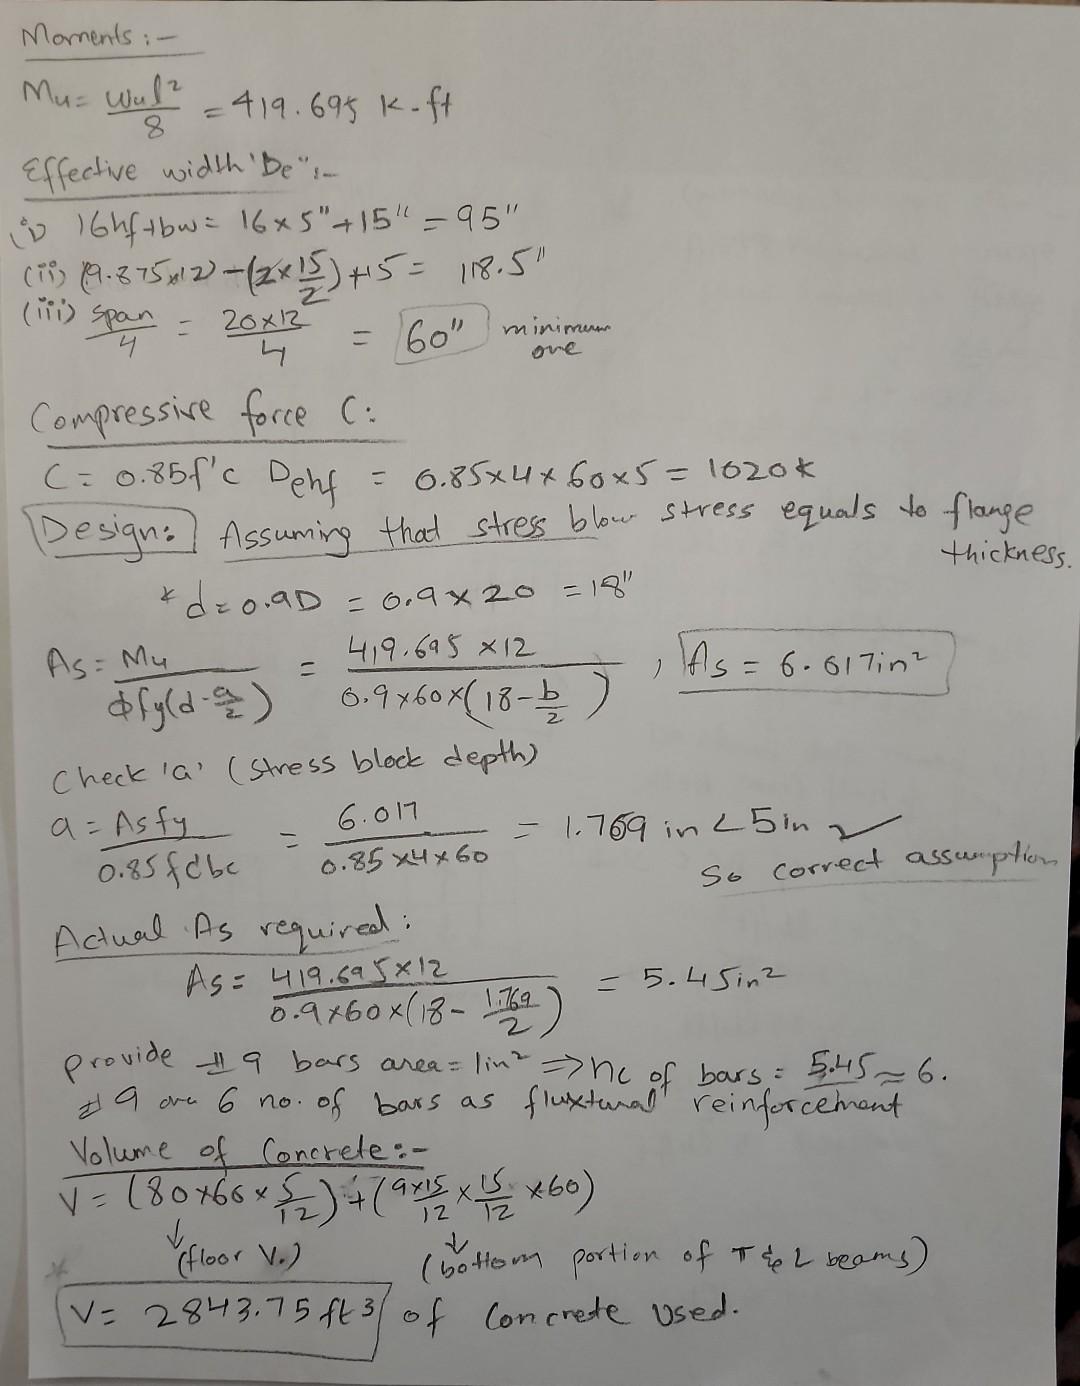 Moments :-
Mu = wul²/8 = 419.695 K-ft
Effective width 'be" :-
(i) 16hf+bw = 16x5"+15" = 95"
(ii) (9.875x12)-(2x15/2)+15 = 118.5"
(iii) span/4 = 20x12/4 = 60" minimum one
Compressive force C:
C = 0.85f'c behf = 0.85x4x60x5 = 1020k
Design: Assuming that stress blow stress equals to flange
thickness.
* d=0.9D = 0.9x20 = 18"
As = Mu/ϕfy(d-a/2) = 419.695 x12/0.9x60x(18-b/2) , As = 6.017in²
Check 'a' (stress block depth)
a = Asfy/0.85f'cbc = 6.017/0.85x4x60 = 1.769 in <5in ✓
So correct assumption
Actual As required :
As = 419.695x12/0.9x60x(18-1.769/2) = 5.45in²
provide #9 bars area = 1in² => no of bars = 5.45 ≈ 6.
#9 are 6 no. of bars as fluxtural reinforcement
Volume of Concrete :-
V = (80x60x5/12)+(9x15/12x15/12 x60)
↓ (floor V.) ↓ (bottom portion of T & L beams)
* V = 2843.75 ft3 of Concrete Used.